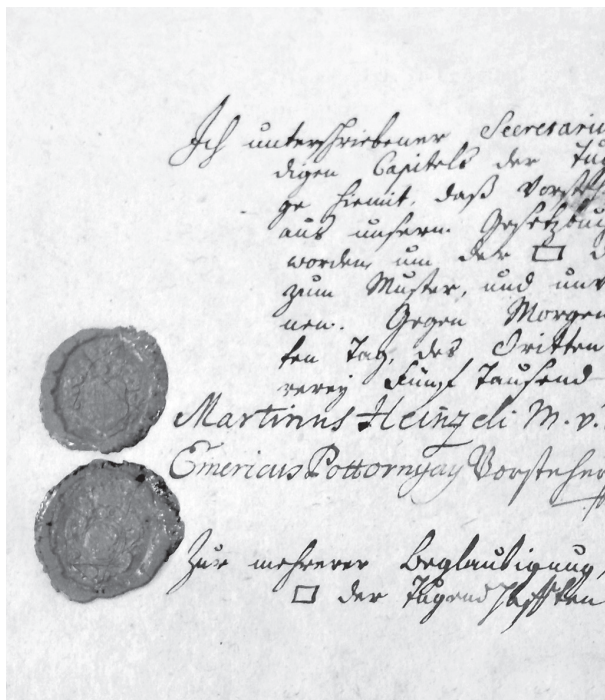 Ich unterschriebener Secretariu
digen Capitels der Tug
ge hiemit, daß Vorsteh
aus unserm Gesetzbuch
worden um der □ d
zum Muster, und unv
nen. Gegen Morgen
ten Tag, des Dritten
rerey Fünf Tausend
Martinus Heinzeli M. v.
Emericus Pottornyay Vorsteher
Zur mehrerer Beglaubigung,
□ der Tugendhafften